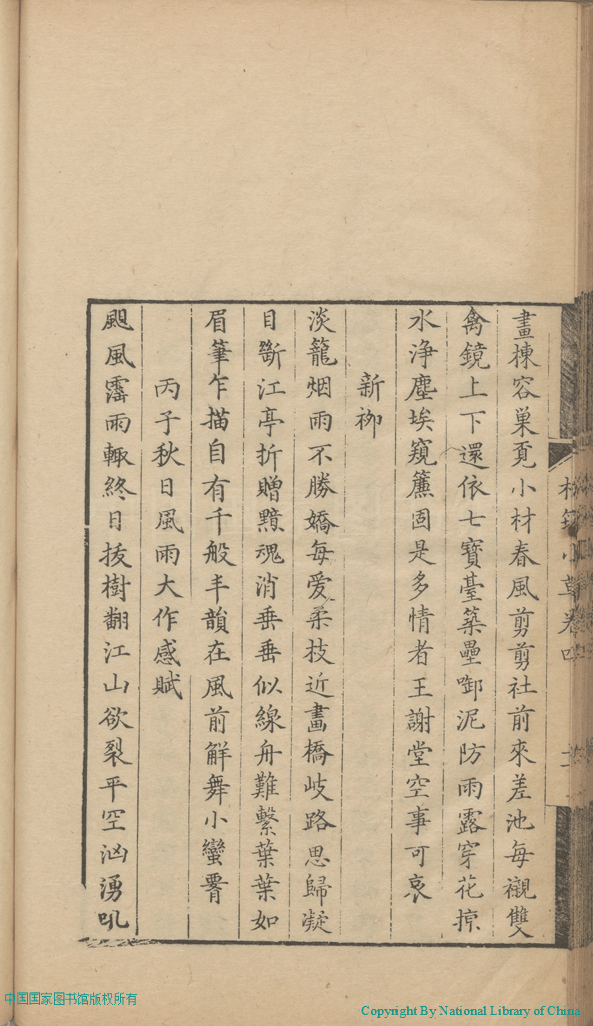 畫棟容巢覓小材春風剪剪社前來差池每襯雙
禽鏡上下還依七寶臺築壘啣泥防雨露穿花掠
水浄塵埃窺簾固是多情者王謝堂空事可哀
新柳
淡籠烟雨不勝嬌每爱柔枝近畫橋岐路思歸凝
目斷江亭折贈黯魂消垂垂似線舟難繫葉葉如
眉筆乍描自有千般丰韻在風前解舞小蠻腰
丙子秋日風雨大作感賦
颶風霪雨輙終日拔樹翻江山欲裂平空汹湧吼
小草卷四
中国国家图书馆版权所有
Copyright By National Library of China